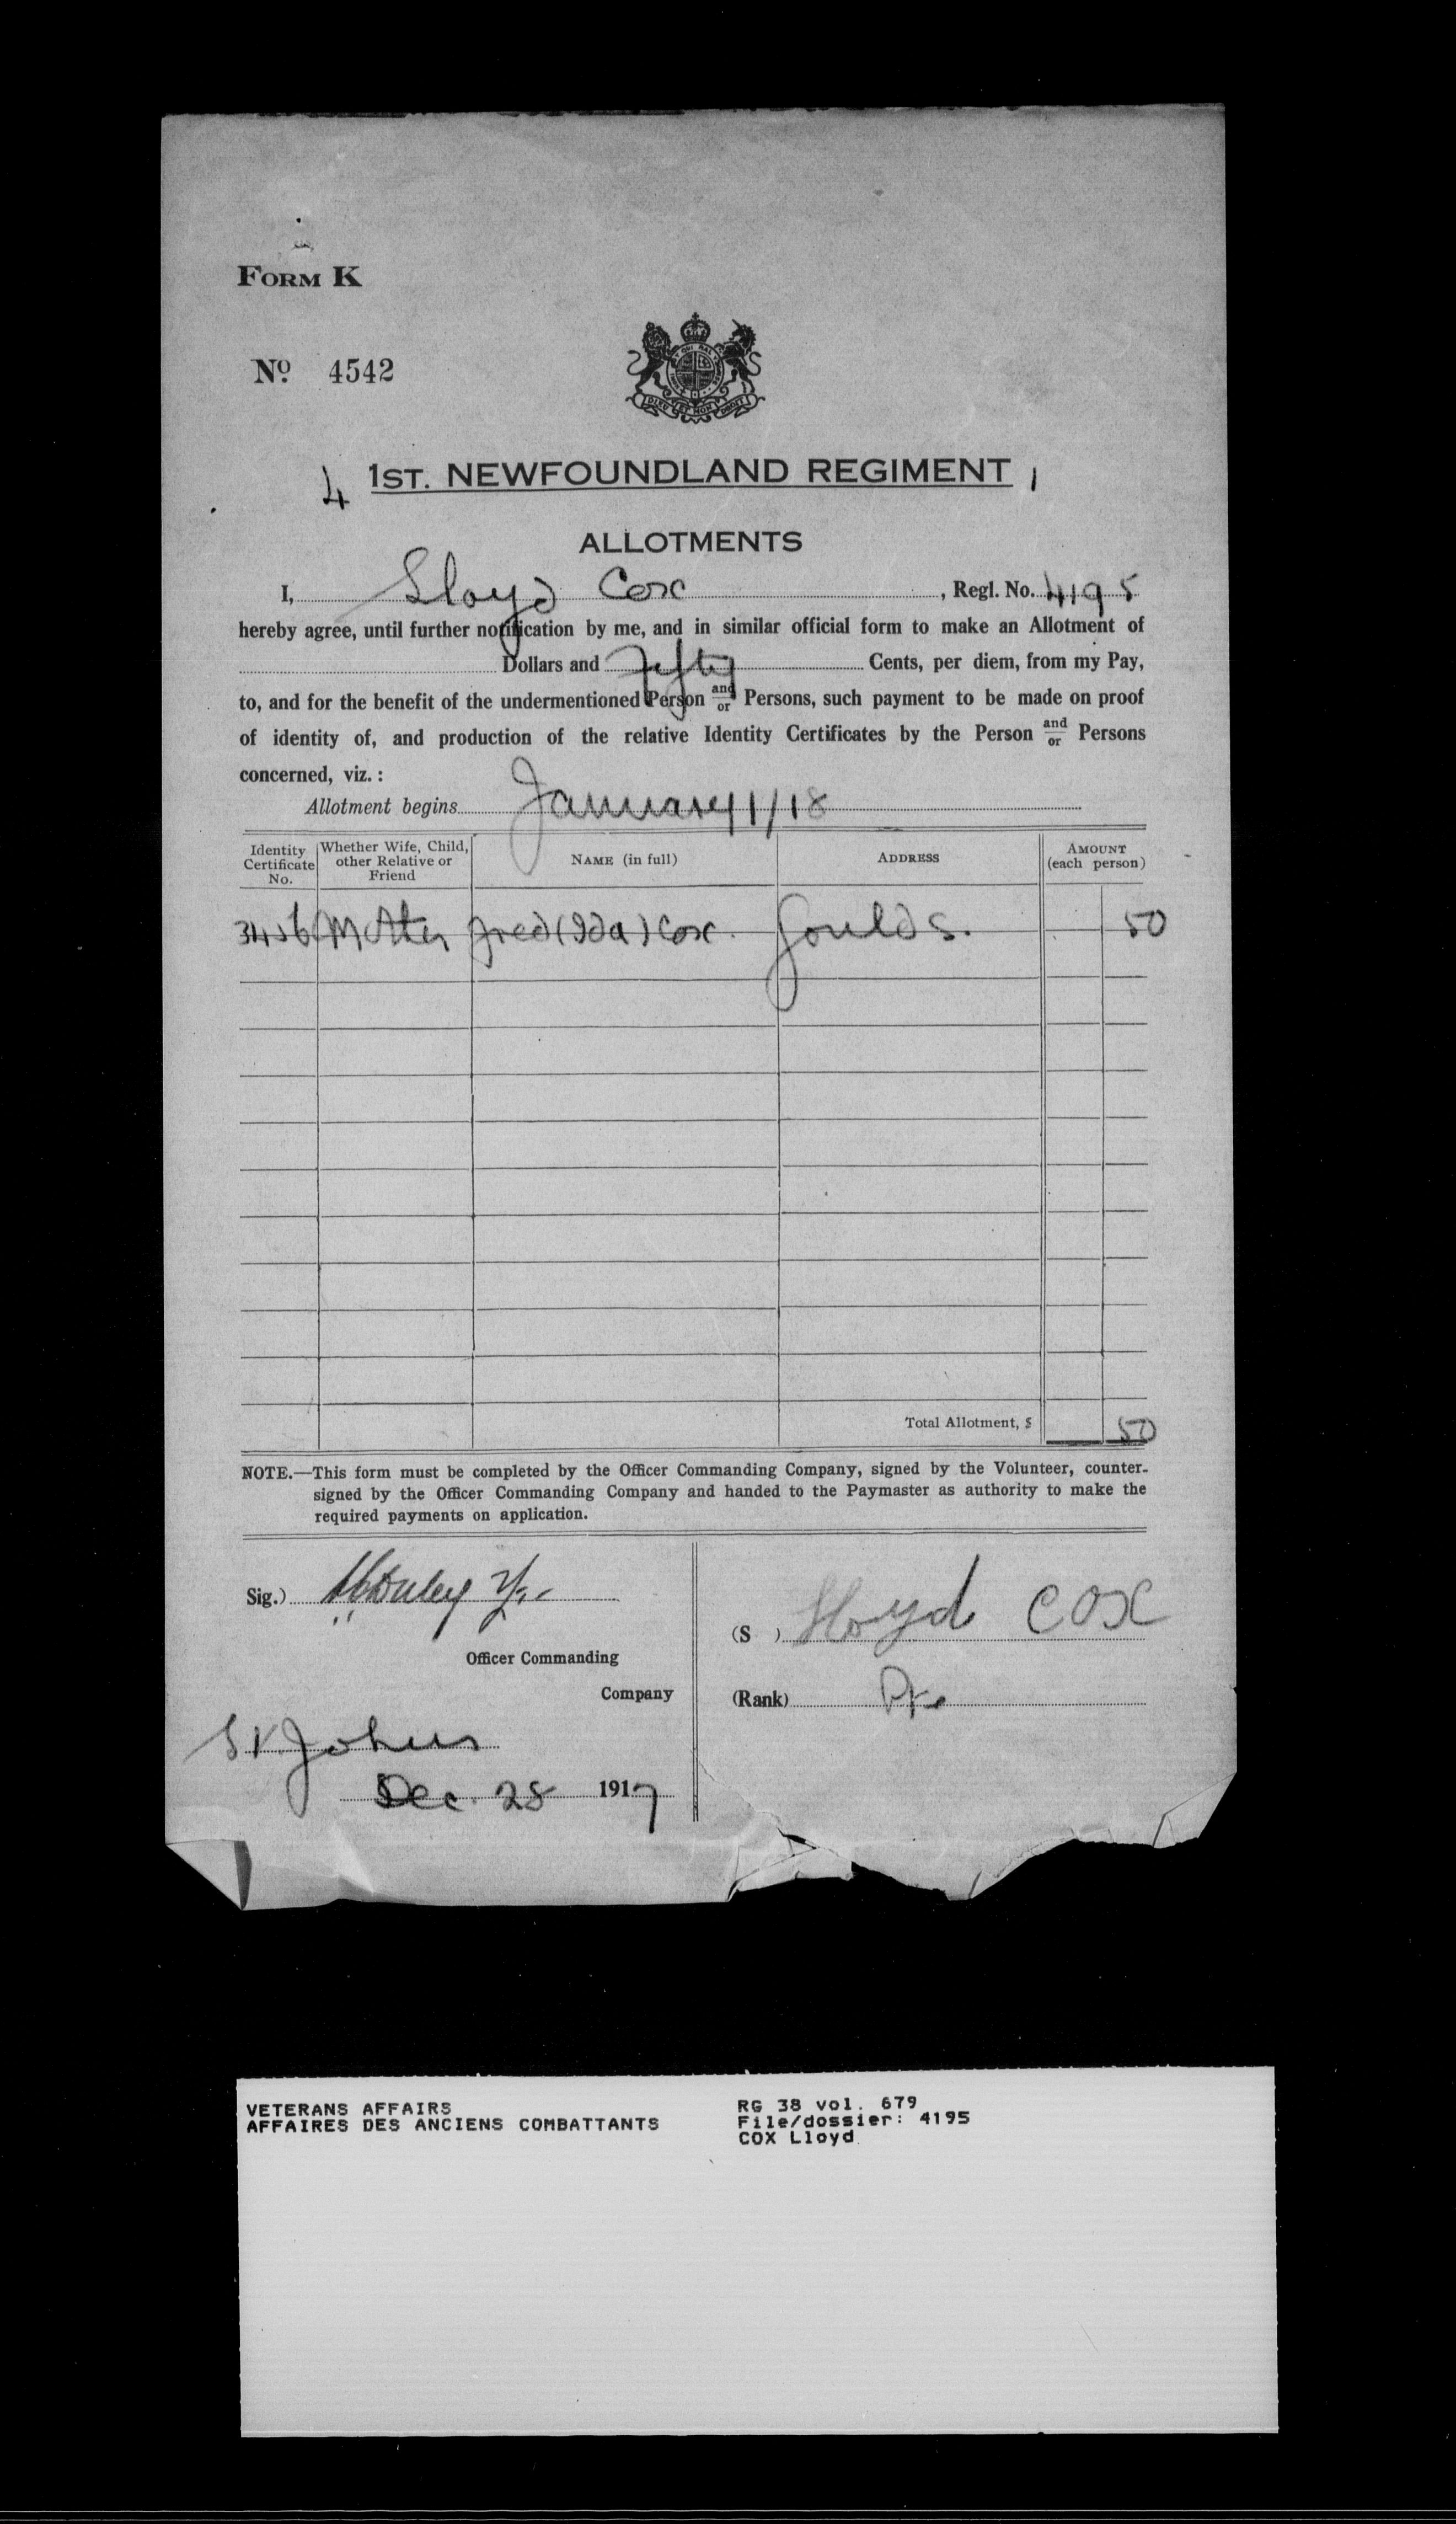 FORM K
No. 4542
DIEU ET MON DROIT
4 1ST. NEWFOUNDLAND REGIMENT 1
ALLOTMENTS
I, Lloyd Cox, Regl. No. 4195
hereby agree, until further notification by me, and in similar official form to make an Allotment of
Dollars and Fifty Cents, per diem, from my Pay,
to, and for the benefit of the undermentioned Person and/or Persons, such payment to be made on proof
of identity of, and production of the relative Identity Certificates by the Person and/or Persons
concerned, viz. :
Allotment begins January 1/18
Identity Certificate No. Whether Wife, Child, other Relative or Friend NAME (in full) ADDRESS AMOUNT (each person)
Mother Fred (Ida) Cox. Goulds. 50
Total Allotment, $ 50
NOTE.—This form must be completed by the Officer Commanding Company, signed by the Volunteer, counter-
signed by the Officer Commanding Company and handed to the Paymaster as authority to make the
required payments on application.
Sig.)
Officer Commanding
Company
St Johns
Dec. 28 1917
(S ) Lloyd Cox
(Rank) Pte
VETERANS AFFAIRS
AFFAIRES DES ANCIENS COMBATTANTS
RG 38 vol. 679
File/dossier: 4195
COX Lloyd